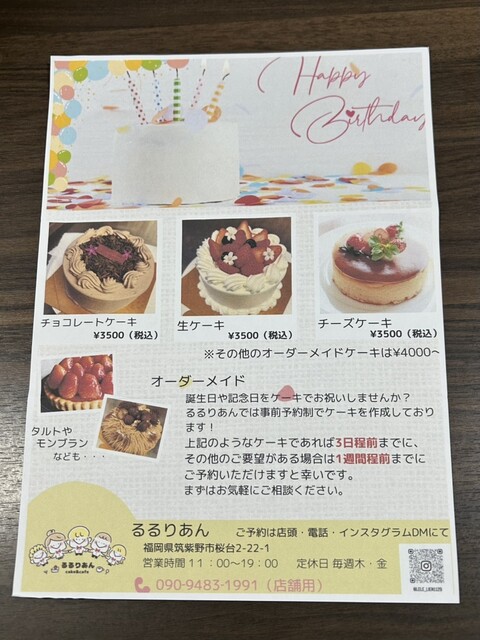 Happy
Birthday
チョコレートケーキ
¥3500（税込）
生ケーキ
¥3500（税込）
チーズケーキ
¥3500（税込）
※その他のオーダーメイドケーキは¥4000~
オーダーメイド
誕生日や記念日をケーキでお祝いしませんか？
るるりあんでは事前予約制でケーキを作成しており
ます！
上記のようなケーキであれば3日程前までに、
その他のご要望がある場合は1週間程前までに
ご予約いただけますと幸いです。
まずはお気軽にご相談ください。
タルトや
モンブラン
なども・・・
るるりあん
ご予約は店頭・電話・インスタグラムDMにて
福岡県筑紫野市桜台2-22-1
営業時間 11：00～19：00 定休日 毎週木・金
090-9483-1991（店舗用）
るるりあん
cake&cafe